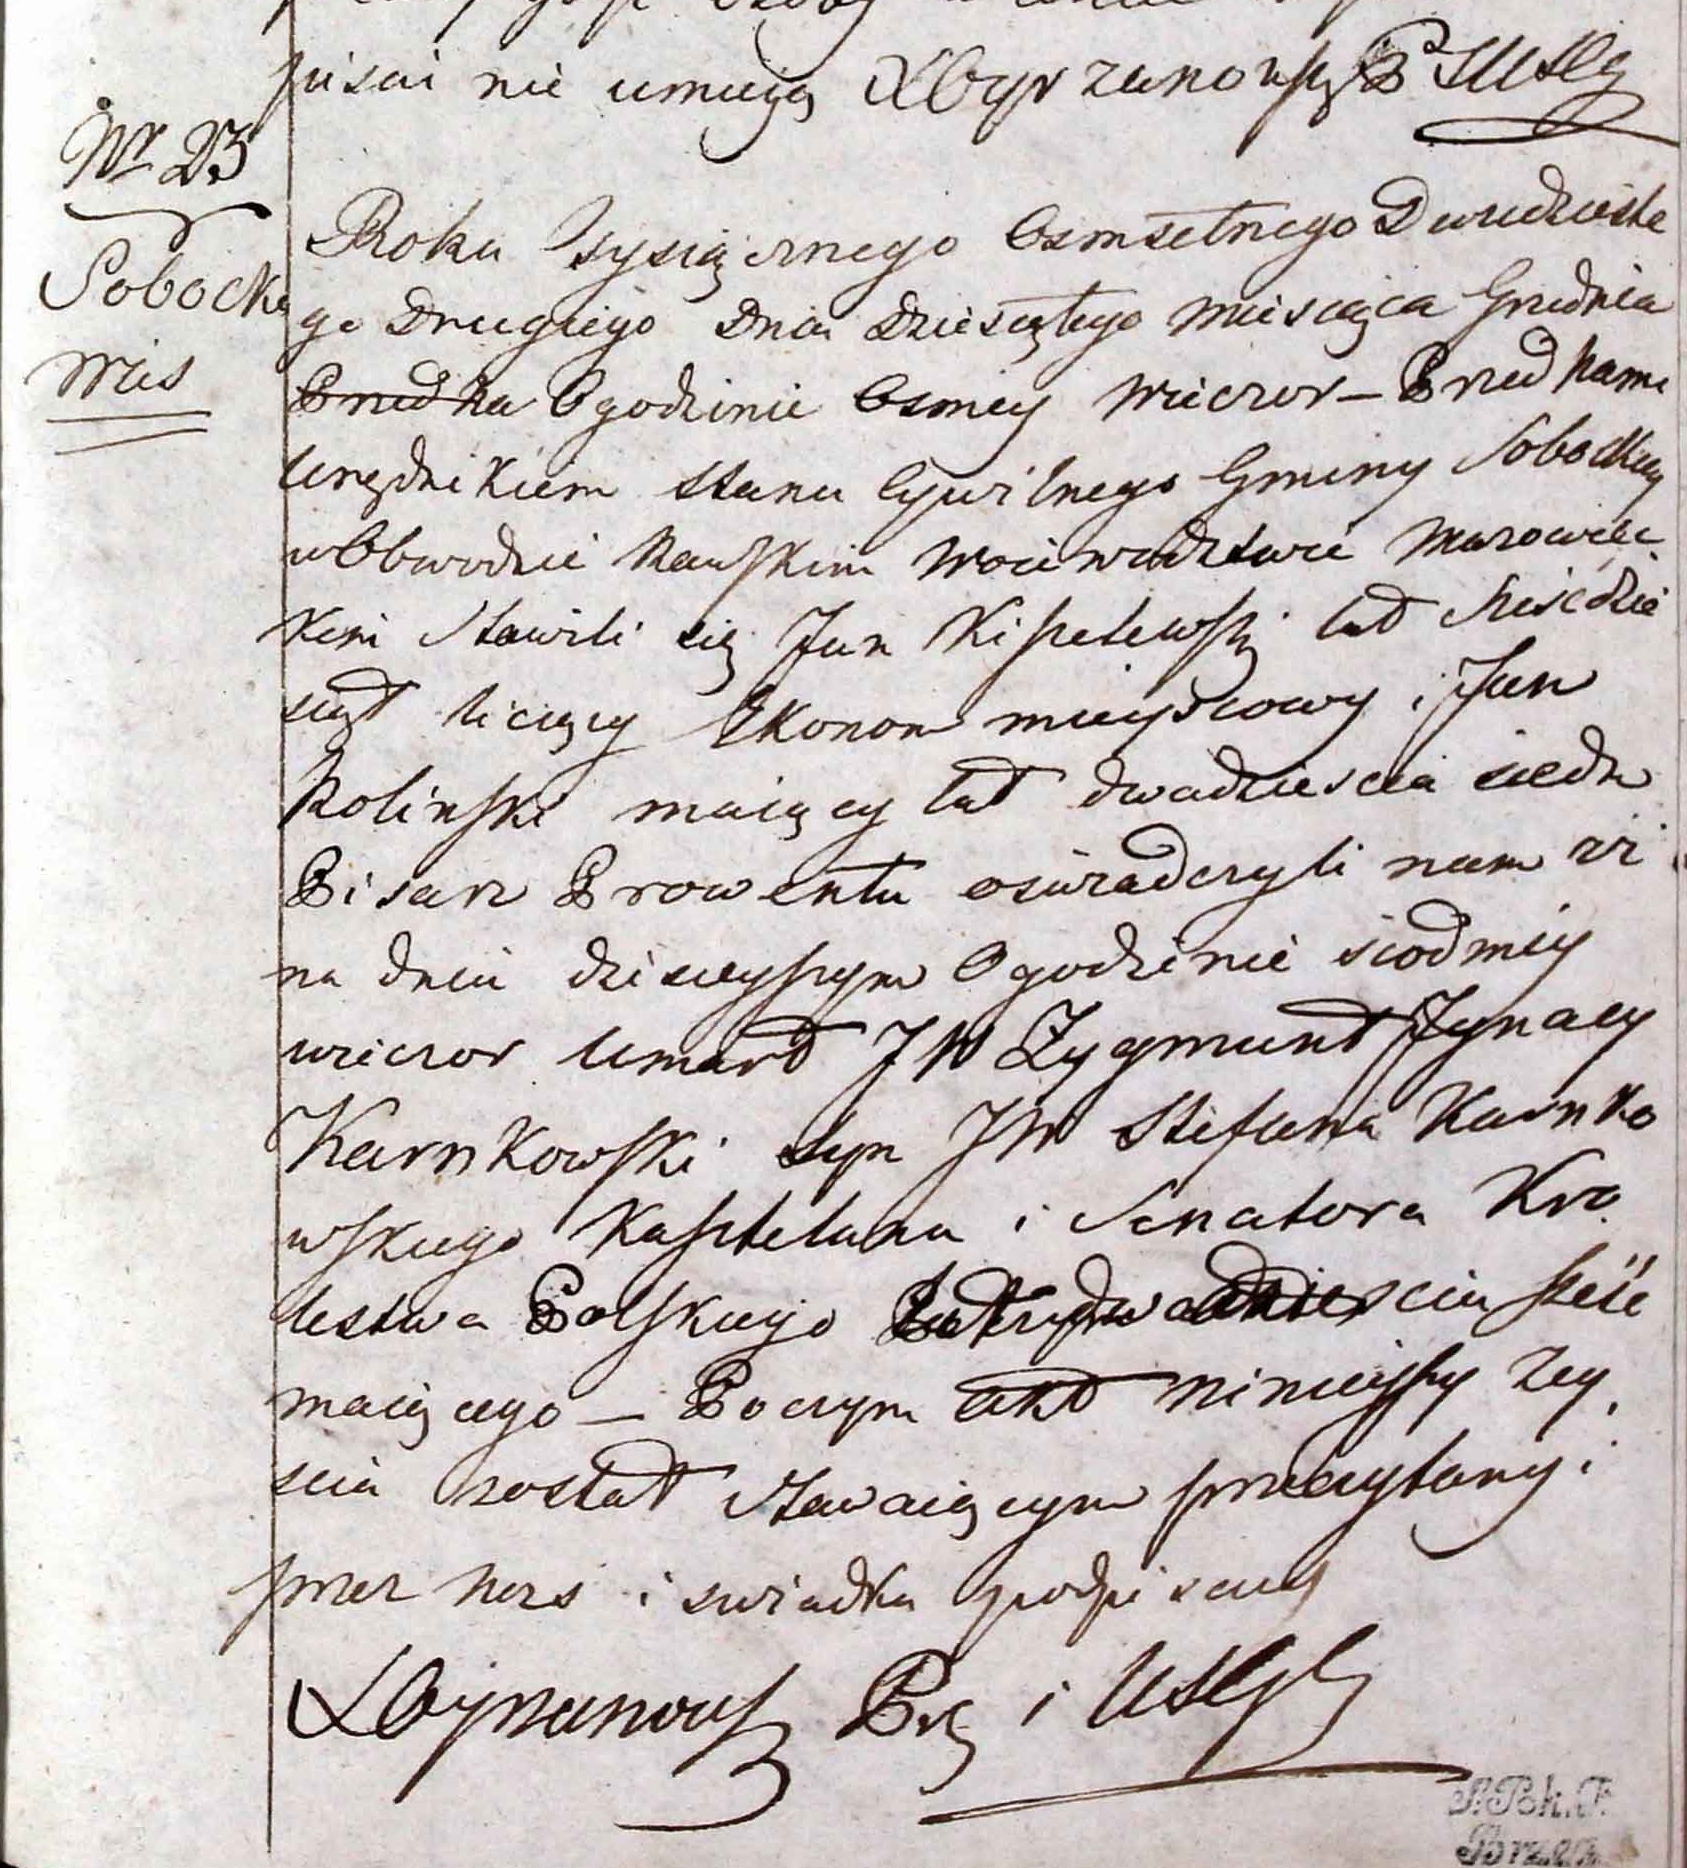 pisać nie umieją
Nr 23
Sobocka
Wieś
Roku Tysiącznego Osmsetnego Dwudzieste
go Drugiego Dnia Dziesiątego Miesiąca Grudnia
Przed Na O godzinie Osmey Wieczor – Przed Nami
Urzędnikiem Stanu Cywilnego Gminy Sobockiey
w Obwodzie Rawskim Woiewodztwie Mazowiec
kim Stawili się Jan Kisielewski lat Sześćdzie
siąt liczący Ekonom mieyscowy i Jan
Roliński maiący lat dwadziescia siedm
Pisarz Prowentu oświadczyli nam iż
na dniu dzisieyszym O godzinie siodmey
wieczor Umarł JW Zygmunt Jgnacy
Karnkowski syn JW Stefana Karnko
wskiego Kasztelana i Senatora Kro
lestwa Polskiego dwadziescia sześć
maiącego – Poczym akt ninieyszy Zey
scia został Stawaiącym przeczytany i
przez Nas i swiadka podpisany